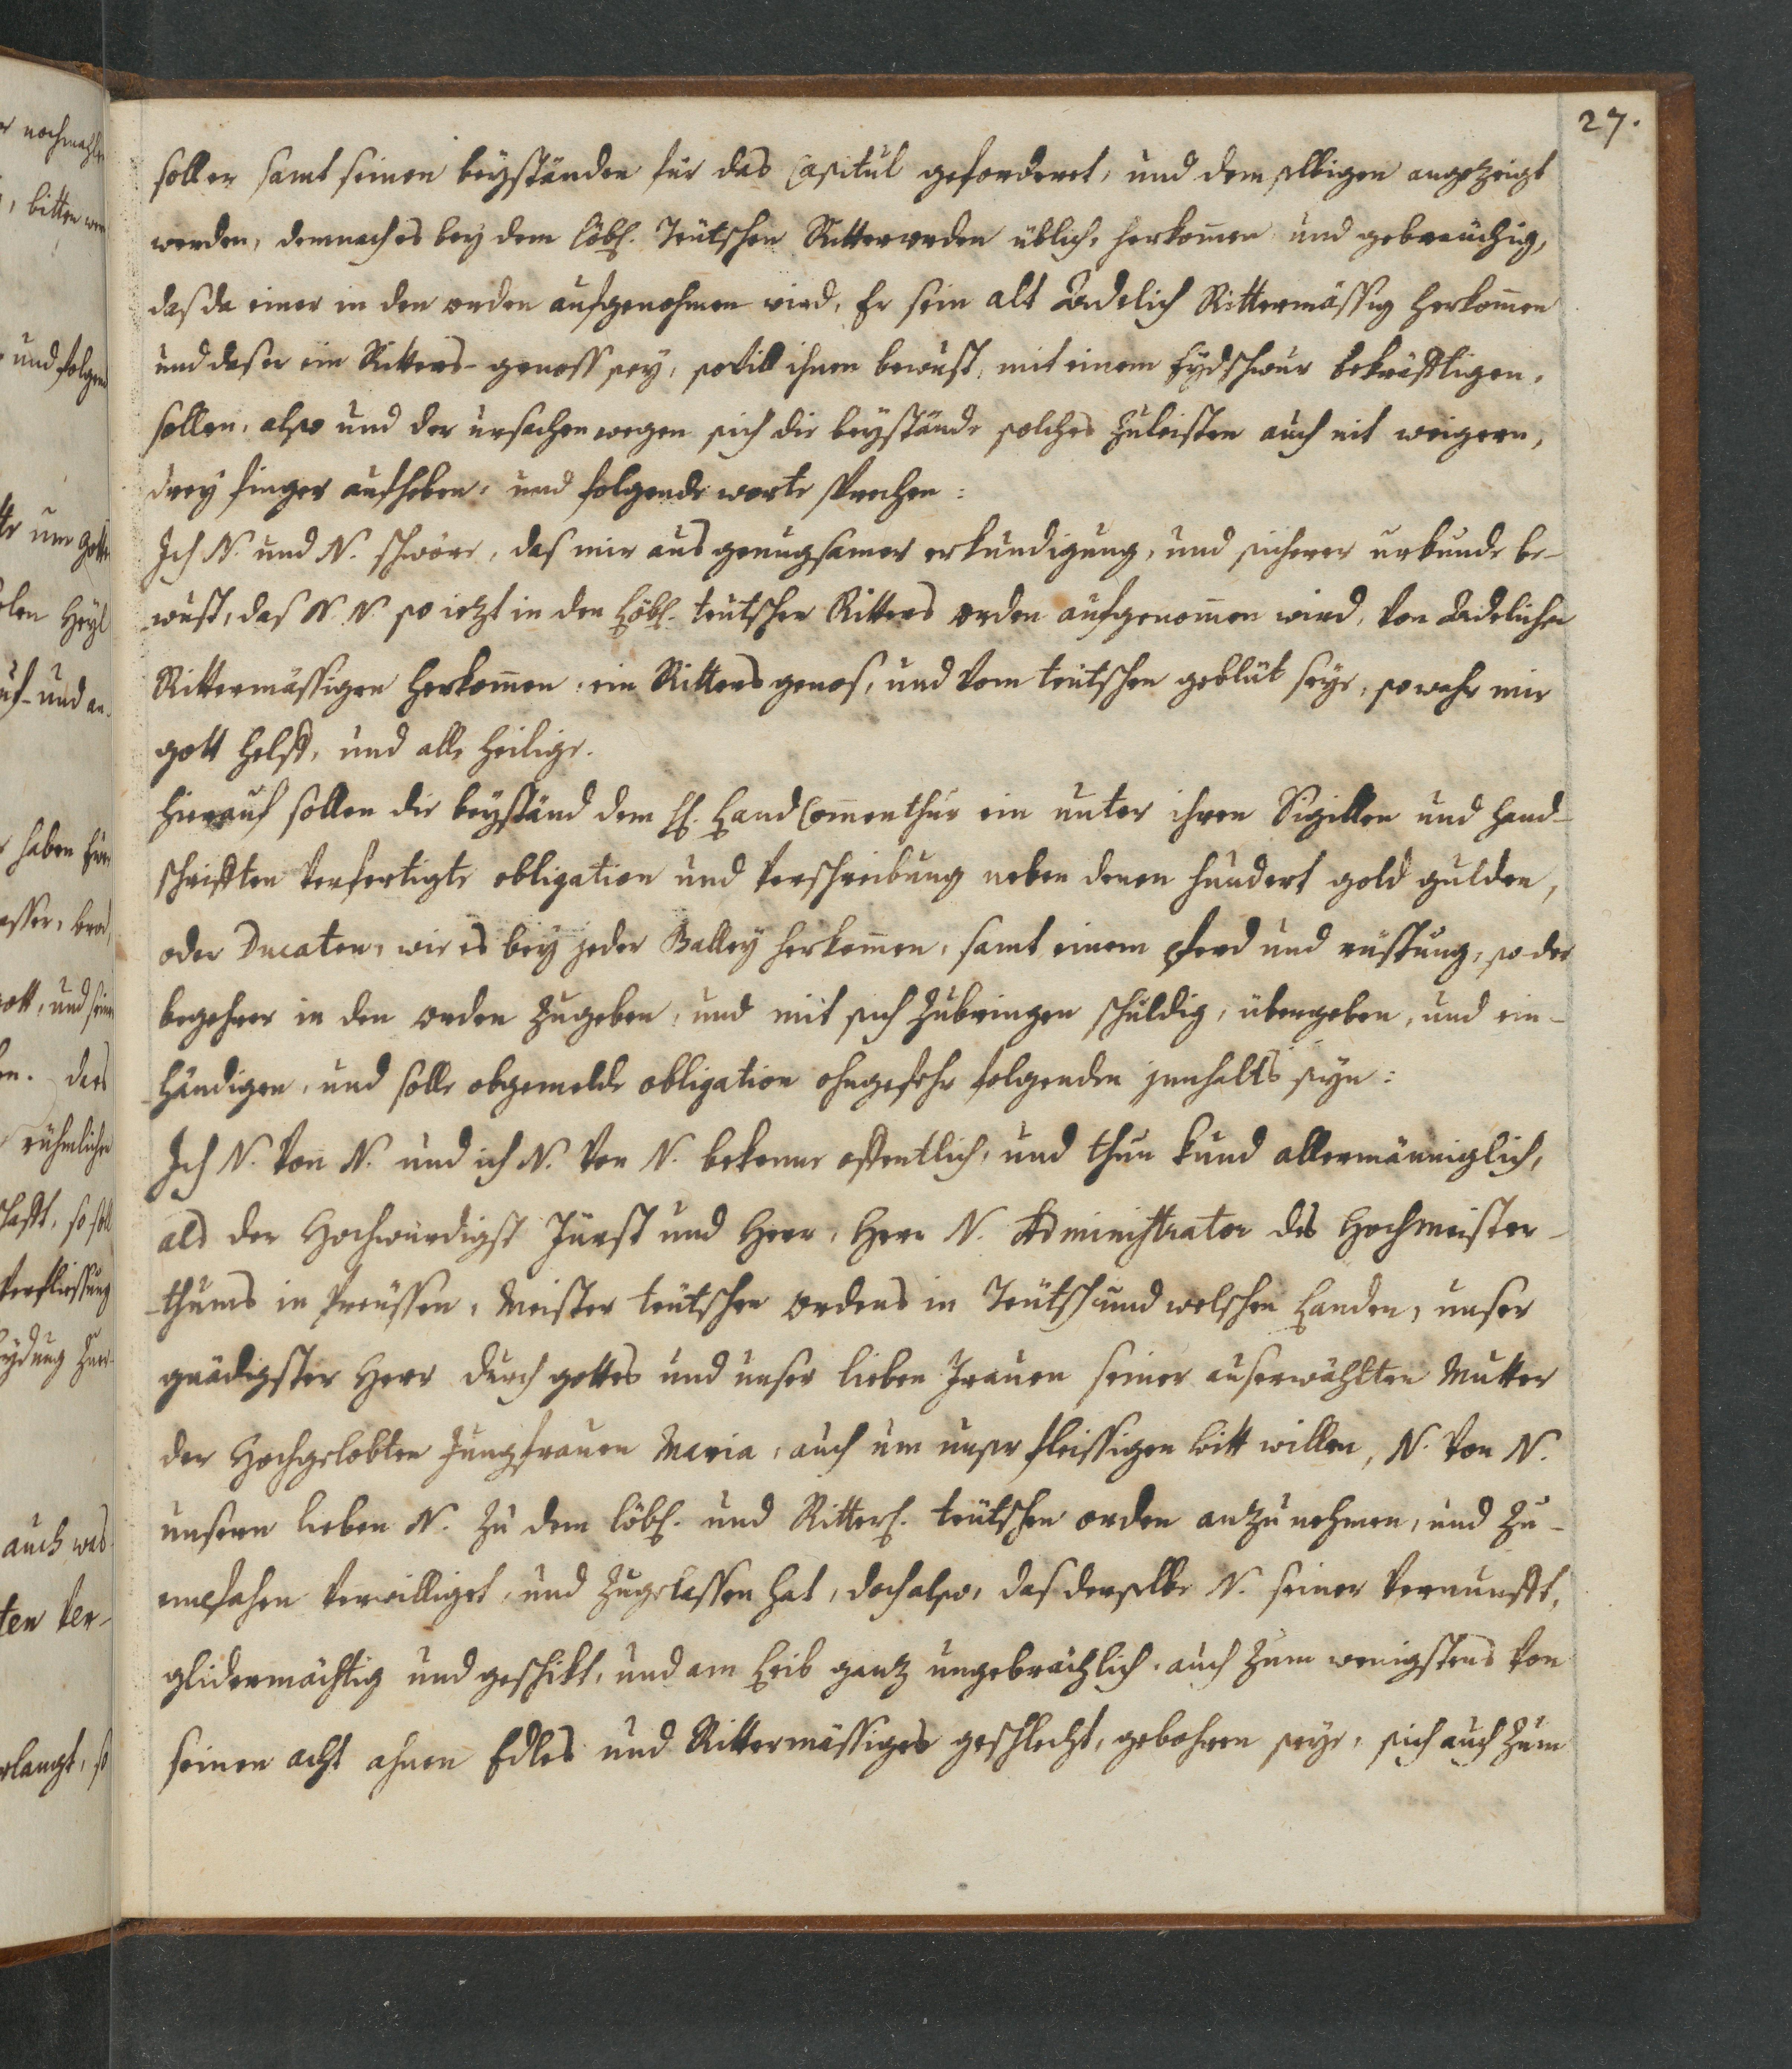 27.
soll er samt seinen beÿständen für das Capitul geforderet, und dem selbigen angezeigt
werden, demnach es beÿ dem löbl. Teütschen Ritterorden üblich, herkom̄en und gebreüchig,
das da einer in den orden aufgenohmen wird, Er sein alt Adelich Rittermässig herkom̄en
und das er ein Ritters-genoss seÿ, so vill ihnen bewust, mit einem Eÿdschwur bekräfftigen
sollen, also und der ursachen wegen sich die beÿstände solches zuleisten auch nit weigern,
dreÿ finger aufheben, und folgende worte sprechen:
Ich N. und N. schwöre, das mir aus genugsamer erkundigung, und sicherer urkunde be-
wust, das N. N. so ietzt in den Löbl. teütschen Ritters orden aufgenom̄en wird, von Adelichen
Rittermässigen herkom̄en, ein Ritters genos, und vom teütschen geblüt seÿe, so wahr mir
gott helff, und alle heilige.
Hierauf sollen die beÿständ dem H. Land Com̄enthur ein unter ihren Sigillen und hand-
schrifften verfertigte obligation und verschreibung neben denen hundert gold gulden,
oder Ducaten, wie es beÿ jeder Balleÿ herkom̄en, samt einem pferd und rüstung, so der
begehrer in den orden zugeben, und mit sich zubringen schuldig, übergeben, und ein-
händigen, und solle obgemelde obligation ohngefehr folgenden jnnhalts seÿn:
Ich N. von N. und ich N. von N. bekenne offentlich, und thun kund allermänniglich,
als der Hochwürdigst Fürst und Herr, Herr N. Administrator des Hochmeister-
thums in Preüssen, Meister teütschen ordens in Teütsch und welschen Landen, unser
gnädigster Herr durch gottes und unser lieben Frauen seiner auserwählten Mutter
der Hochgelobten Jungfrauen Maria, auch um unser fleissigen bitt willen, N. von N.
unsern lieben N. zu dem löbl. und Ritterl. teütschen orden anzunehmen, und zu-
empfahen verwilliget, und zugelassen hat, doch also, das derselbe N. seiner vernunfft,
glidermächtig und geschikt, und am Leib ganz ungebrächlich, auch zum wenigstens von
seinen acht ahnen Edles und Rittermässiges geschlecht, gebohren seÿe, sich auch zum